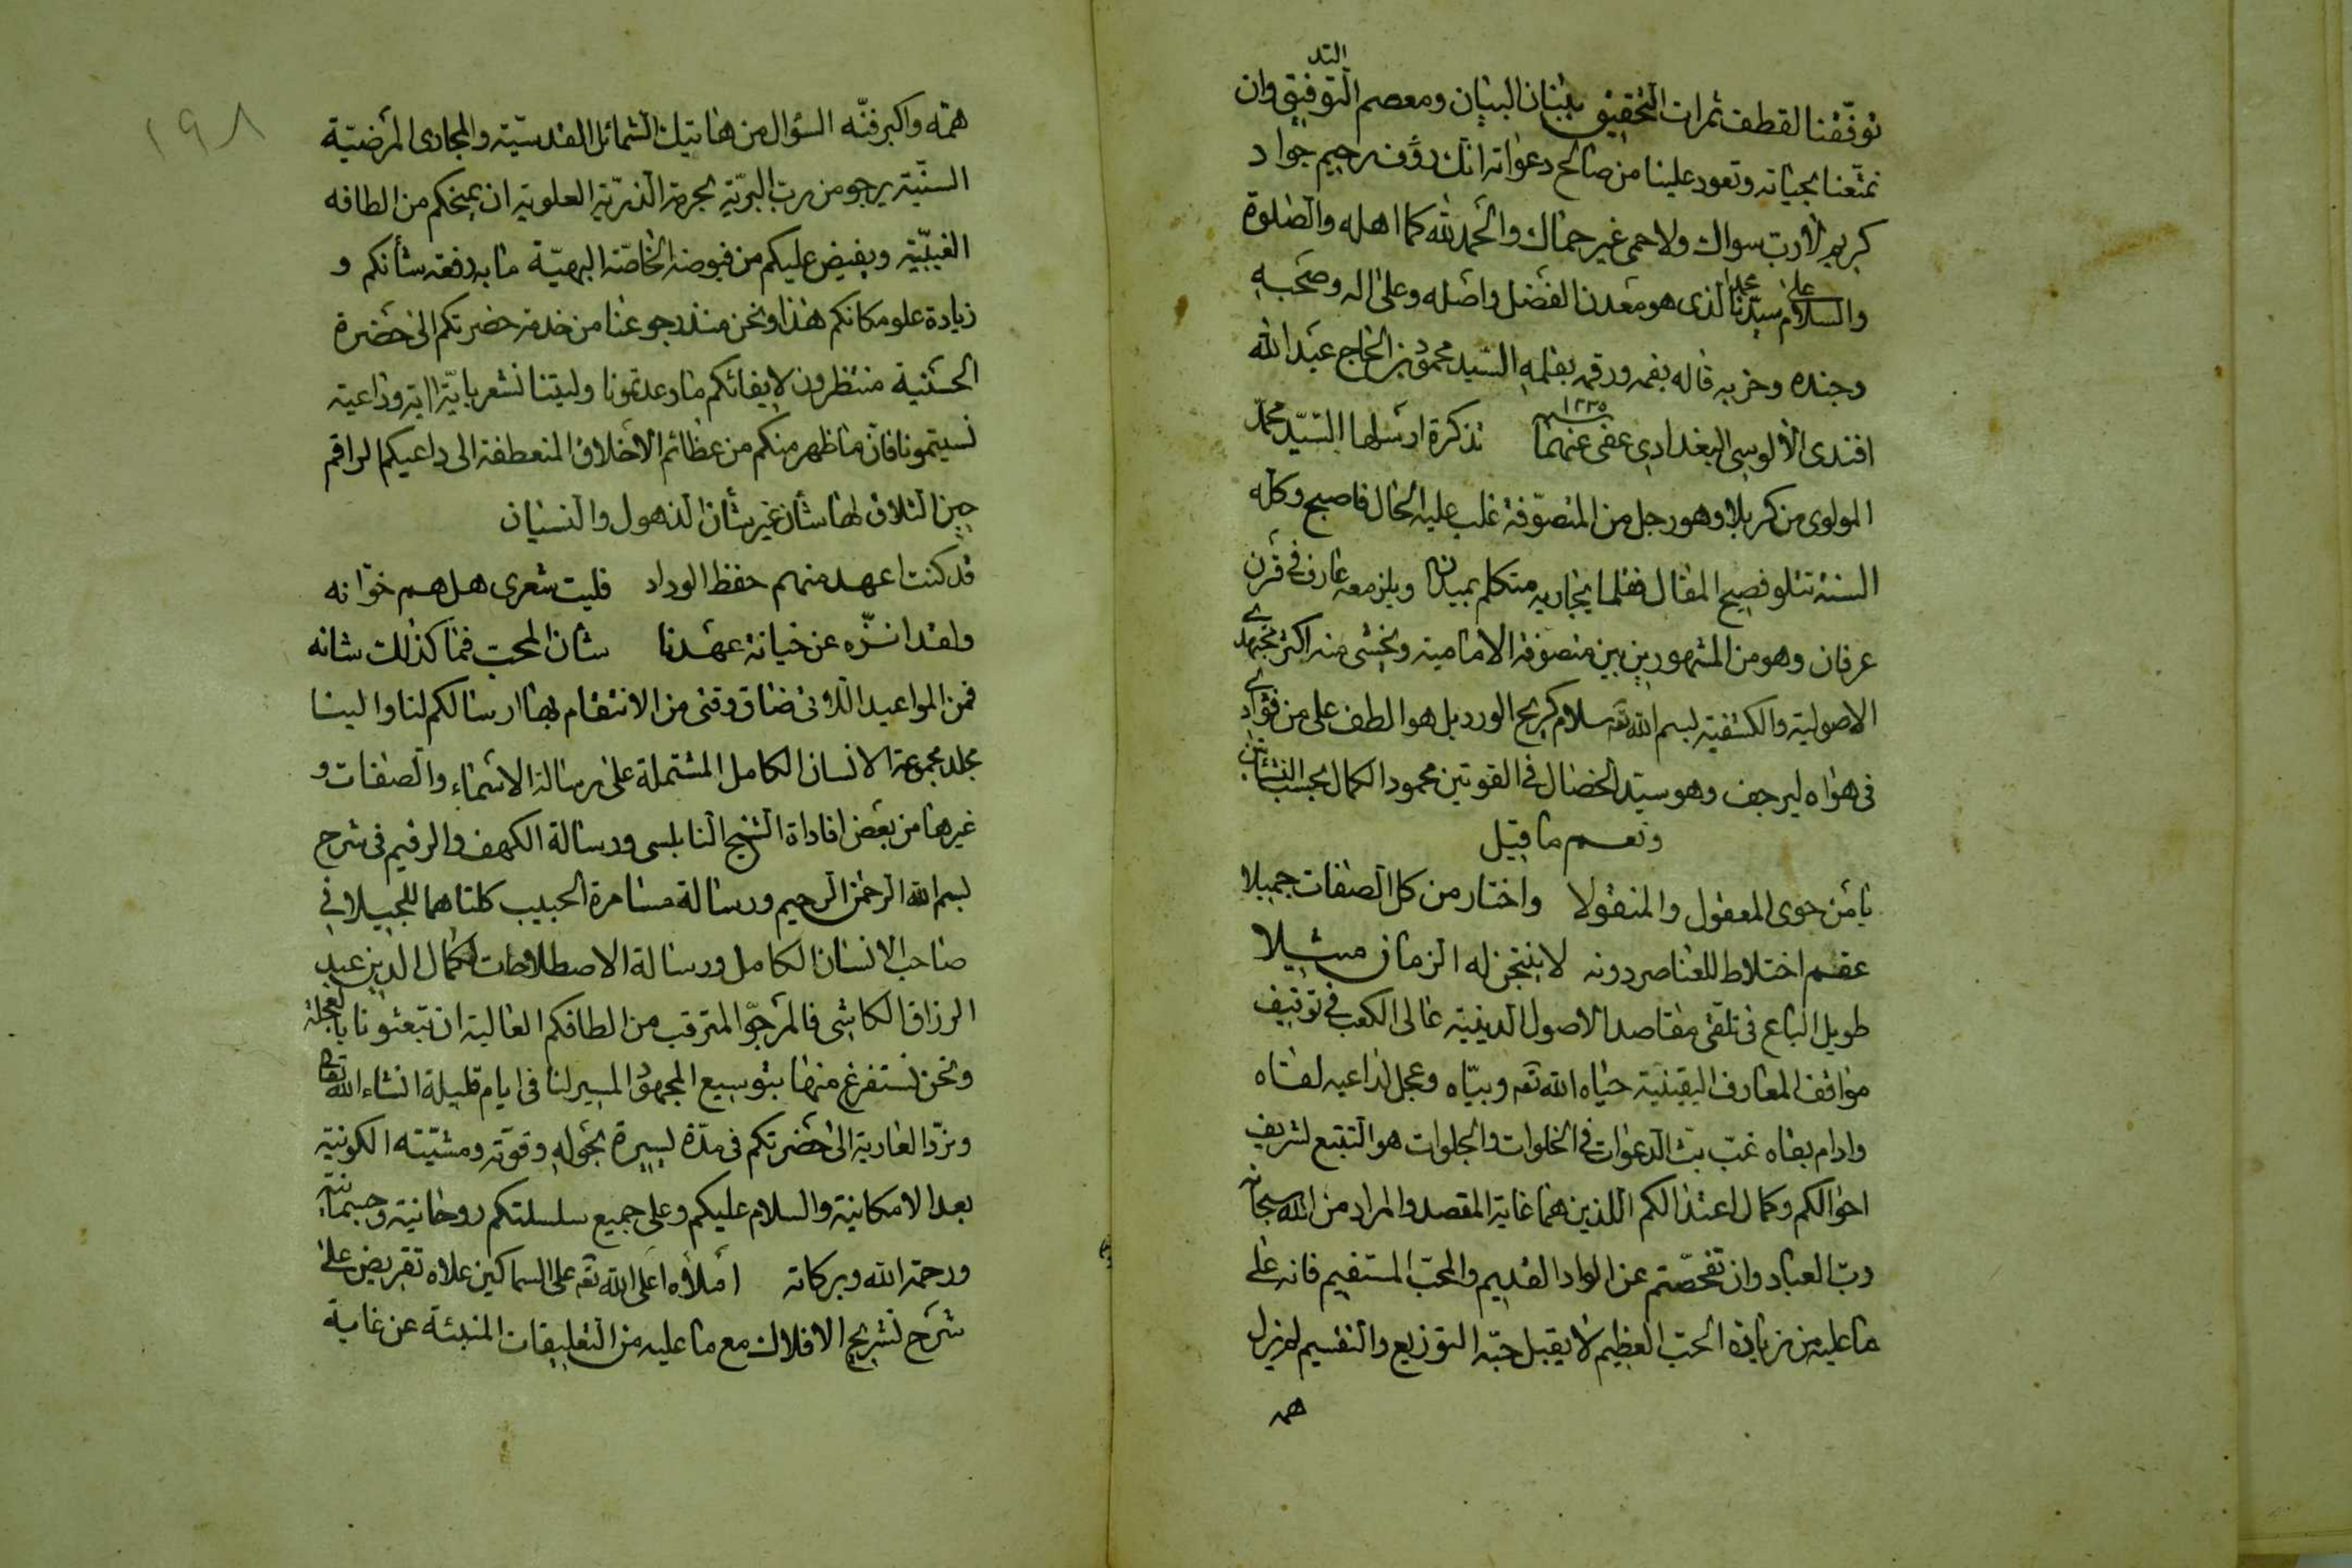 توفّقنا لقطف ثمرات التحقيق ببنان البيان ومعصم التوفيق وان
تمتّعنا بحياته وتعود علينا من صالح دعواته انك رؤف رحيم جواد
كريم لا رب سواك ولا حمى غير حماك والحمد لله كما اهله والصلوة
والسلام على سيّدنا محمد الذى هو معدن الفضل واصله وعلى اله وصحبه
وجنده وحزبه قاله بفمه ورقمه بقلمه السيد محمود بن الحاج عبد الله
افندى الألوسى البغدادى عفى عنهما ١٢٣٥ تذكرة ارسلها السيّد محمد
المولوى من كربلا وهو رجل من المتصوّفة غلب عليه الحال فاصبح وكله
السنة تتلو فصيح المقال فقلما يجاريه متكلم بميدان ويلز معه عارف فى قرن
عرفان وهو من المشهورين بين متصوفة الامامية ويخشى منه اكثر مجتهدى
الاصولية والكشفية بسم الله تعه سلام كريح الورد بل هو الطف على من فؤادى
فى هواه ليرجف وهو سيّد الخصال فى القوتين محمود الكمال بحسب النشأتين
ونعم ما قيل
يا من حوى المعقول والمنقولا واختار من كل الصفات جميلا
عقم اختلاط للعناصر دونه لا ينتجن له الزمان مثيلا
طويل الباع فى تلقى مقاصد الاصول الدينية عالى الكعب فى توقيف
مواقف المعارف اليقينية حياه الله تعه وبيّاه وعجل لداعيه لقاه
وادام بقاه غبّ بث الدعوات فى الخلوات والجلوات هو التتبع لشريف
احوالكم وكمال اعتدالكم اللذين هما غاية المقصد والمراد من الله سبحانه
وربّ العباد وان تفحّصتم عن الواد القديم والمحبّ المستقيم فانه على
ما عليه من زيادة الحبّ العظيم لا يقبل حبّه التوزيع والتقسيم لم يزل
همه
١٩٨
همّه واكبر فنّه السؤال من هاتيك الشمائل القدسيّة والمجارى المرضيّة
السنّية يرجو من ربّ البريّة بحرمة الذريّة العلوية ان يمنحكم من الطافه
الغيبيّة ويفيض عليكم من فيوضه الخاصّة البهيّة ما به رفعة شأنكم و
زيادة علو مكانكم هذا ونحن منذ رجوعنا من خدمة حضرتكم الى حضرة
الحسنية منتظرون لايفائكم ما وعدتمونا وليتنا نشعر باية اية وداعية
نسيتمونا فان ما ظهر منكم من عظائم الاخلاق المنعطفة الى داعيكم الراقم
حين التلاق لها شأن غير شأن الذهول والنسيان
قد كنت اعهد منهم حفظ الوداد فليت شعرى هل هم خوّانه
ولقد انزّه عن خيانة عهدنا شان المحب فما كذلك شانه
فمن المواعيد اللاتى ضاق وقتى من الانتقام بها ارسالكم لنا والينا
مجلد مجموعة الانسان الكامل المشتملة على رسالة الاسماء والصفات و
غيرها من بعض افاداة الشيخ النابلسى ورسالة الكهف والرقيم فى شرح
بسم الله الرحمن الرحيم ورسالة مسامرة الحبيب كلتاهما للجيلانى
صاحب الانسان الكامل ورسالة الاصطلاحات لكمال الدين عبد
الرزاق الكاشى فالمرجوّ المترقب من الطافكم العالية ان تبعثونا بالعجلة
ونحن نستفرغ منها بتوسيع المجهود الميسر لنا فى ايام قليلة انشاء الله تعالى
ونردّ العارية الى حضرتكم فى مدّة يسيرة بحوله وقوّته ومشيّته الكونية
بعد الامكانية والسلام عليكم وعلى جميع سلسلتكم روحانية وجسمانية
ورحمة الله وبركاته املاه اعلى الله تعه على السماكين علاه تقريض على
شرح تشريح الافلاك مع ما عليه من التعليقات المنبئة عن غاية